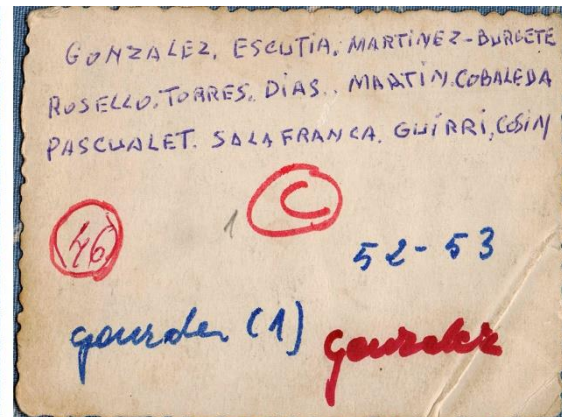 GONZALEZ, ESCUTIA, MARTINEZ-BURGETE
ROSELLO, TORRES, DIAS, MARTIN, COBALEDA
PASCUALET. SALAFRANCA. GUIRRI, COSIN
1 C
46
52-53
gonzalez (1) gonzalez